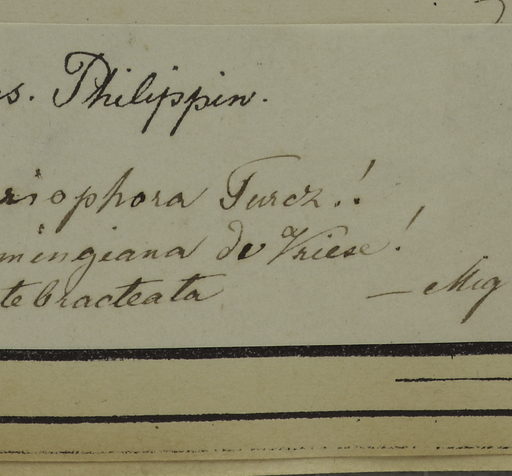 s. Philippin.
riophora Turcz.!
mingiana de Vriese!
tebracteata — Miq